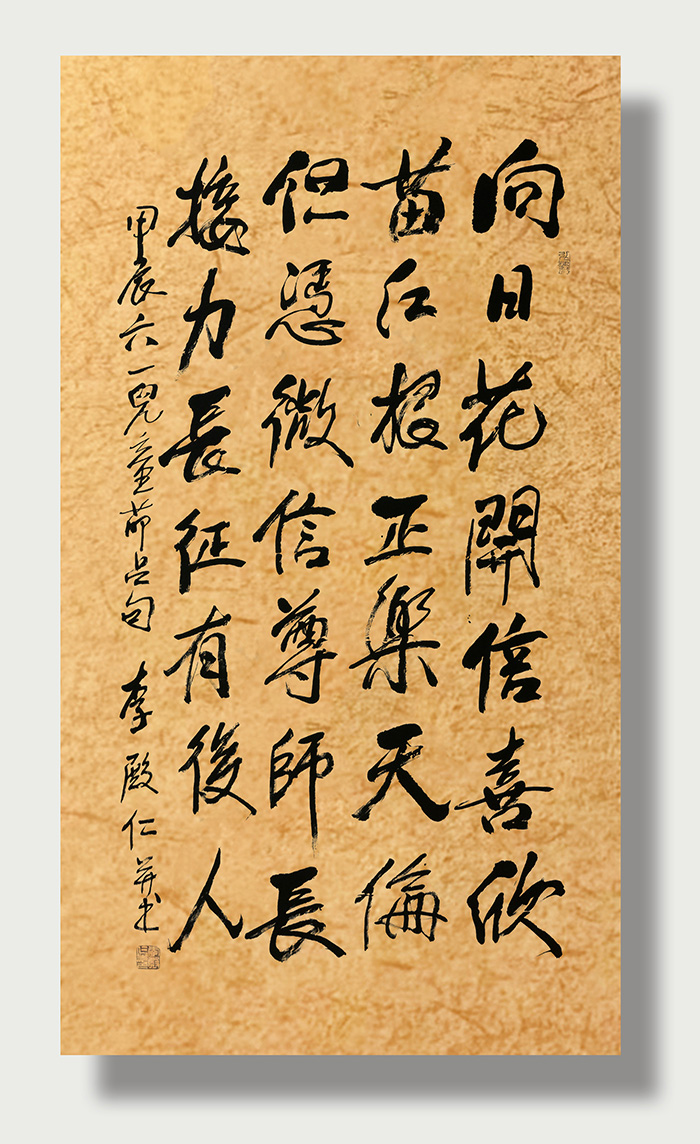 向日花開倍喜欣
苗红根正樂天倫
但憑微信尊師長
接力長征有後人
甲辰六一兒童節占句 李殿仁并书